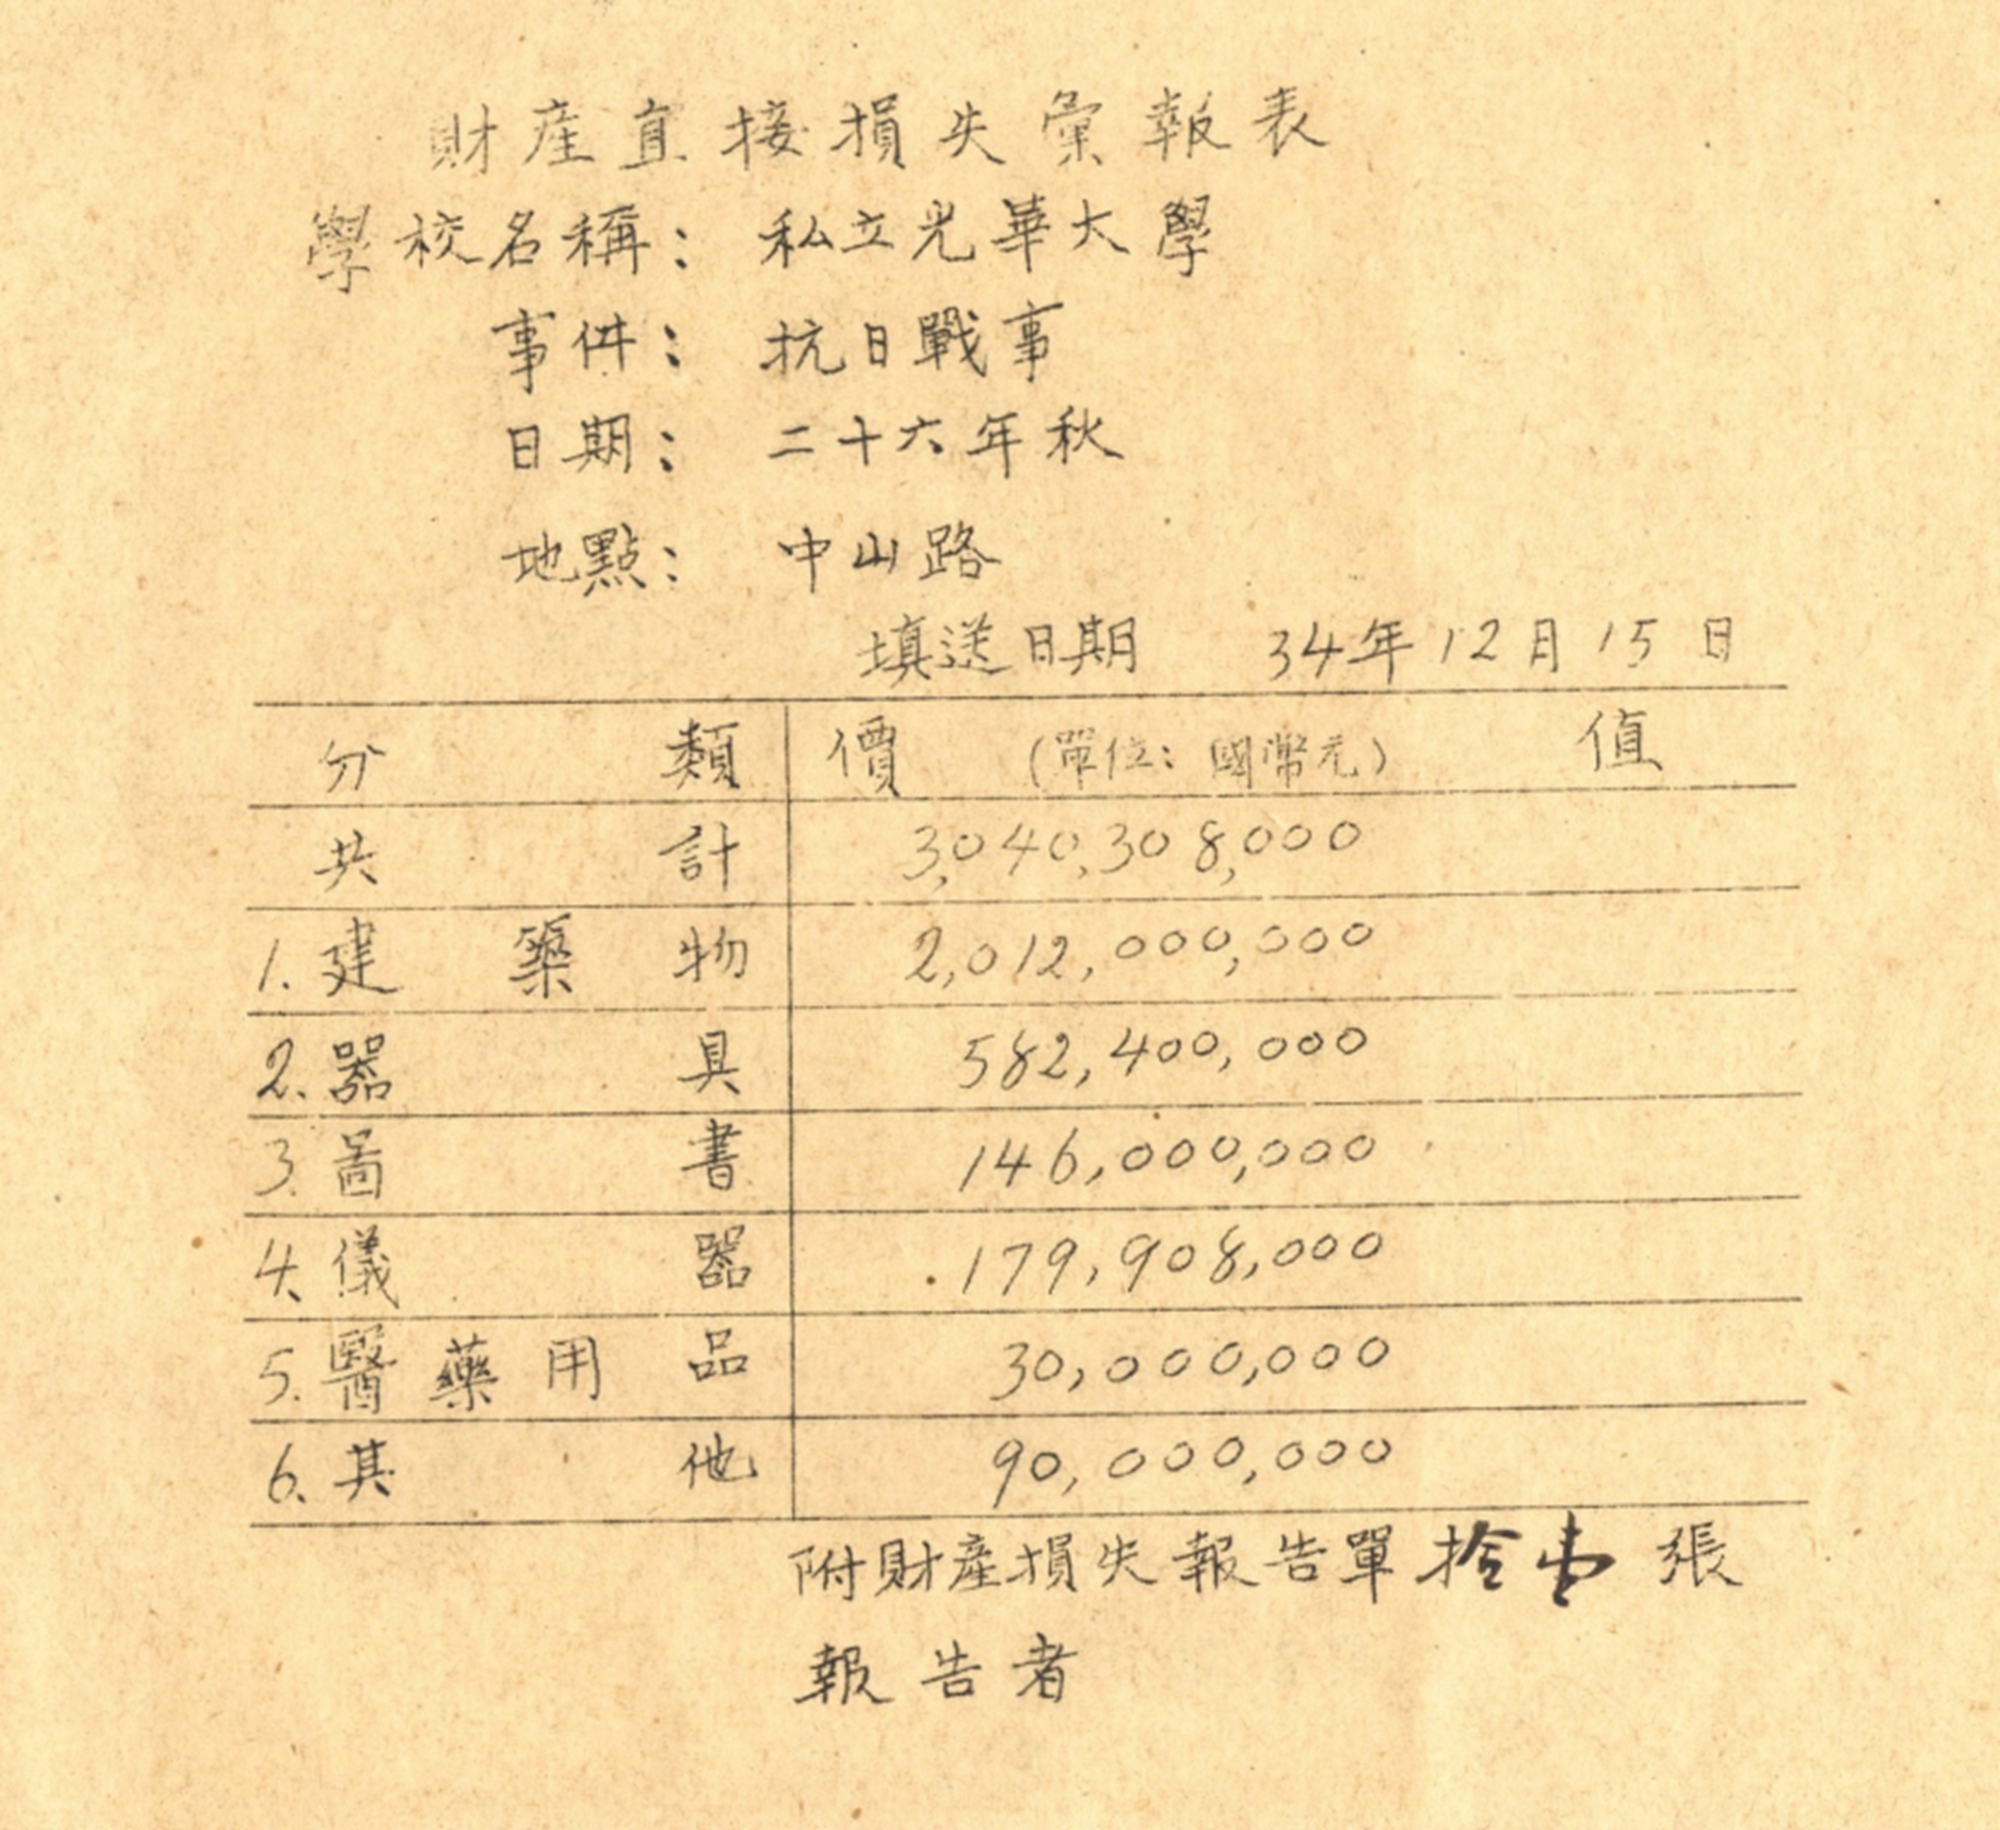 財產直接損失彙報表
學校名稱：私立光華大學
事件：抗日戰事
日期：二十六年秋
地點：中山路
填送日期 34年12月15日
分類 價（單位：國幣元）值
共計 3,040,308,000
1.建築物 2,012,000,000
2.器具 582,400,000
3.圖書 146,000,000
4.儀器 179,908,000
5.醫藥用品 30,000,000
6.其他 90,000,000
附財產損失報告單拾壹張
報告者